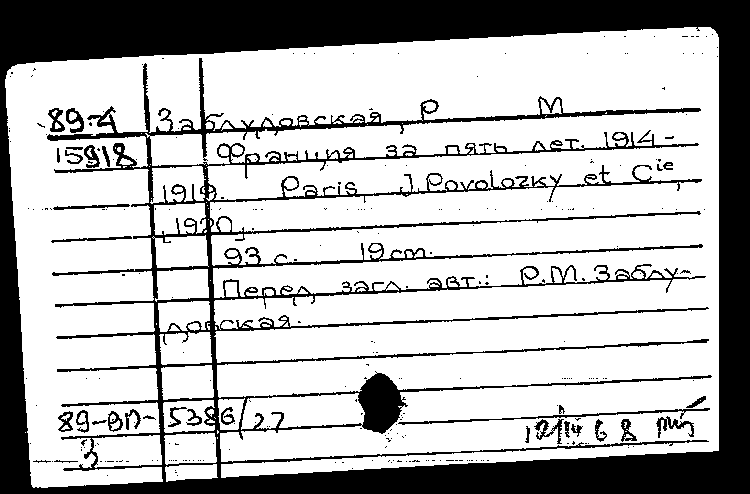 89-4 Заблудовская, Р М
15918 Франция за пять лет. 1914-
1919. Paris, J.Povolozky et Cie,
[1920].
93 с. 19 cm.
Перед загл. авт.: Р.М. Заблу-
довская.
89-ВП- 5386/27
3
12/14 6 8